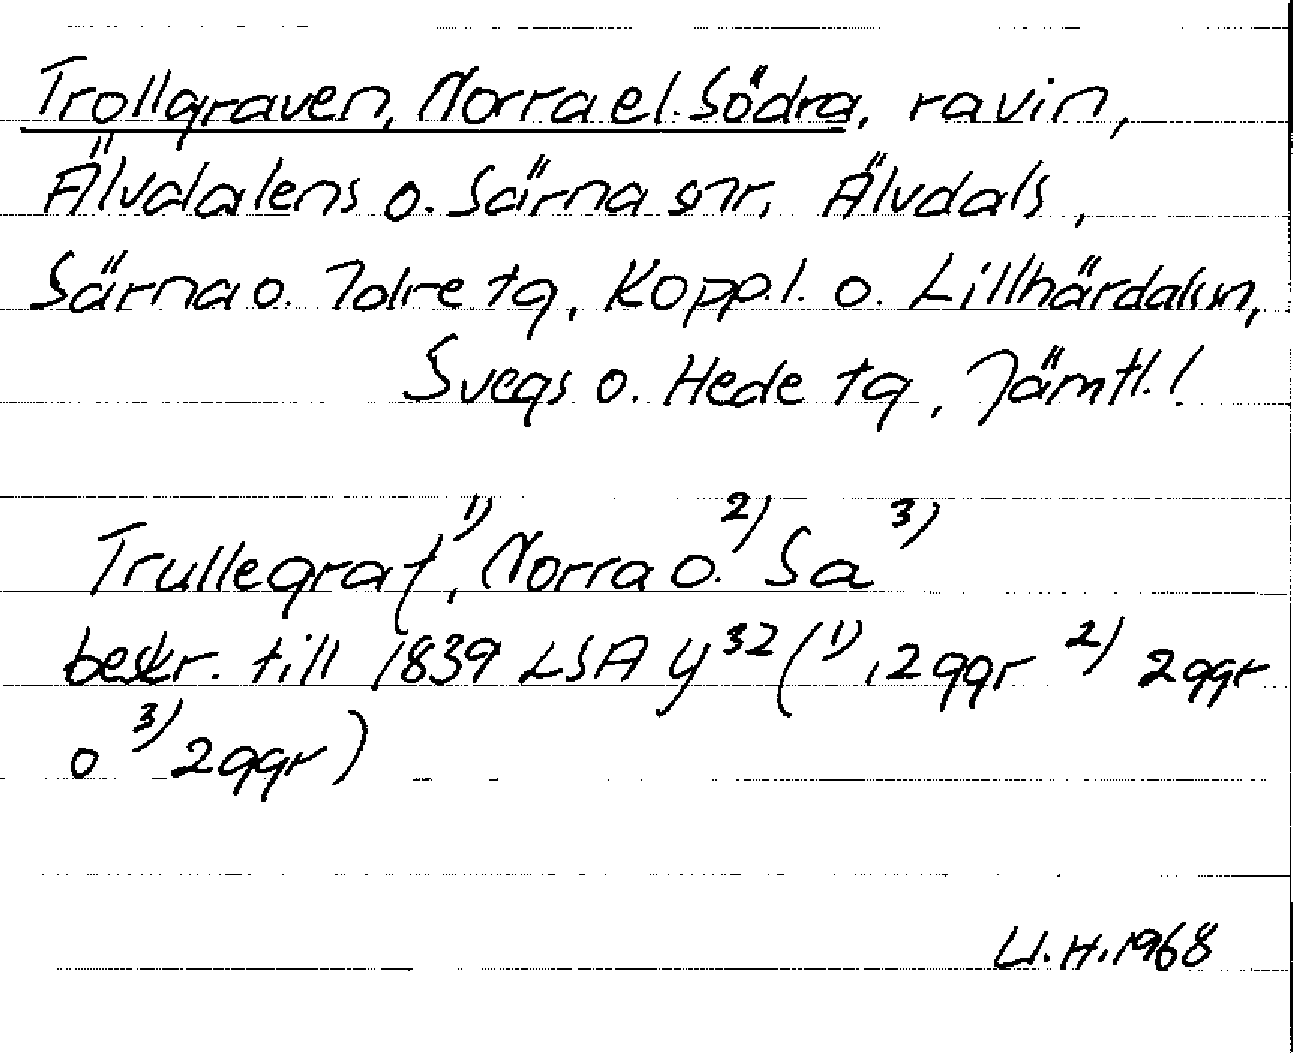 Trollgraven, Norra el. Södra, ravin,
Älvdalens o. Särna snr, Älvdals,
Särna o. Idre tg, Koppl. o. Lillhärdal sn,
Svegs o. Hede tg, Jämtl.!
Trullegraf¹⁾, Norra o.²⁾ Sa³⁾
beskr. till 1839 LSA y³² (¹⁾, 2ggr ²⁾ 2ggr
o ³⁾ 2ggr)
U.H. 1968